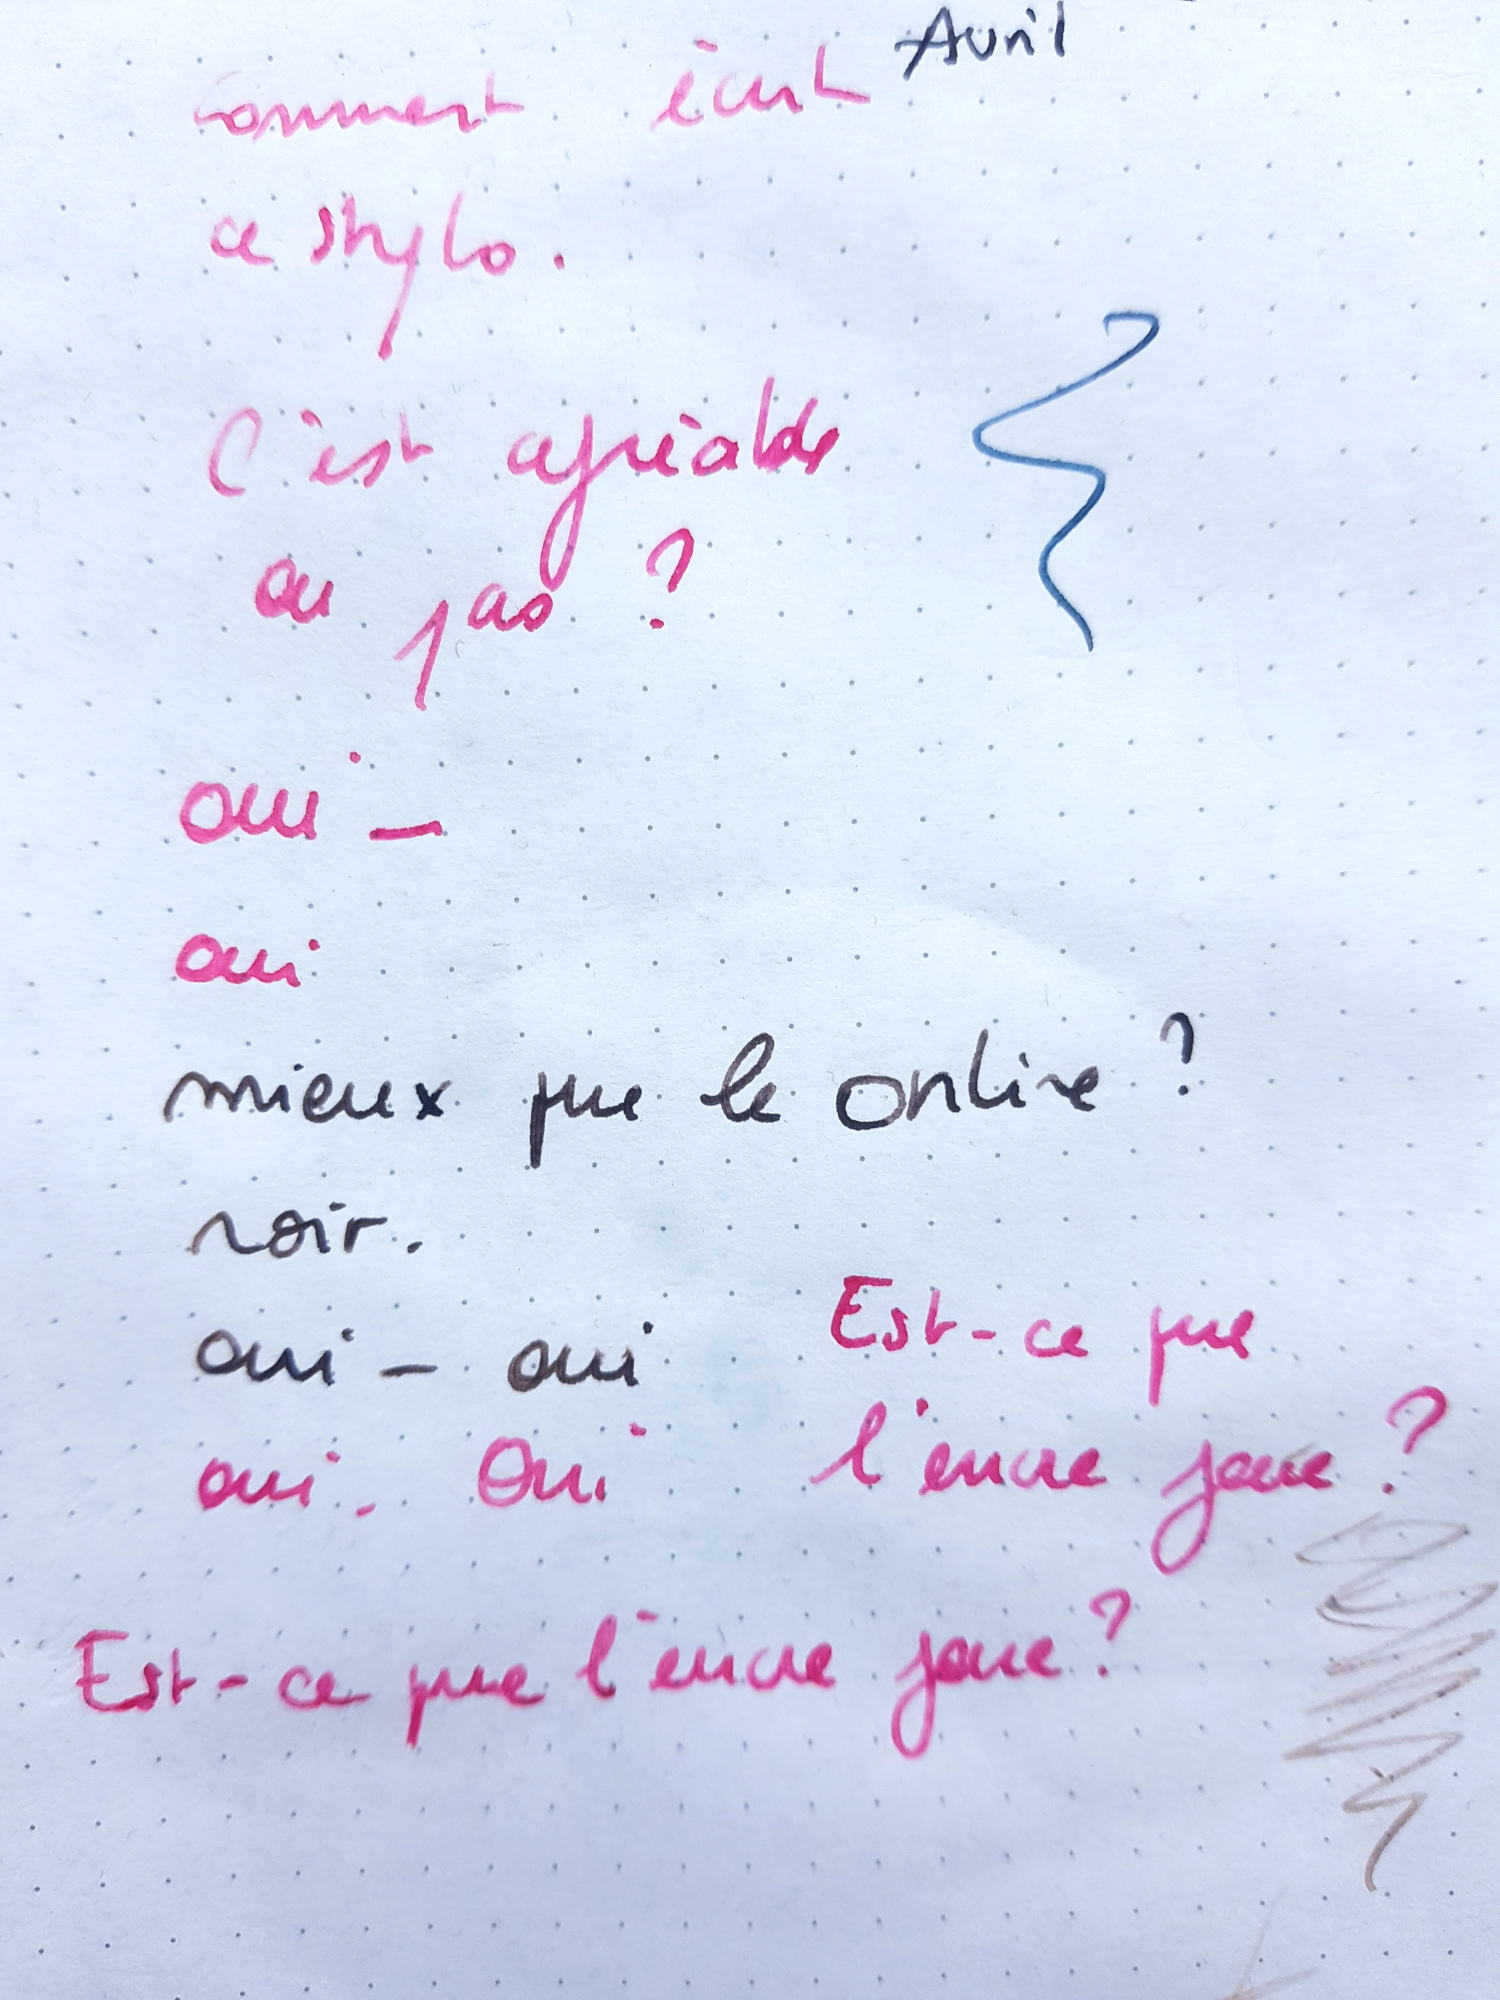 Avril
comment écrit
ce stylo.
C'est agréable
ou pas ?
oui -
oui
mieux que le online ?
noir.
oui - oui
oui. Oui
Est-ce que
l'encre joue ?
Est-ce que l'encre joue ?